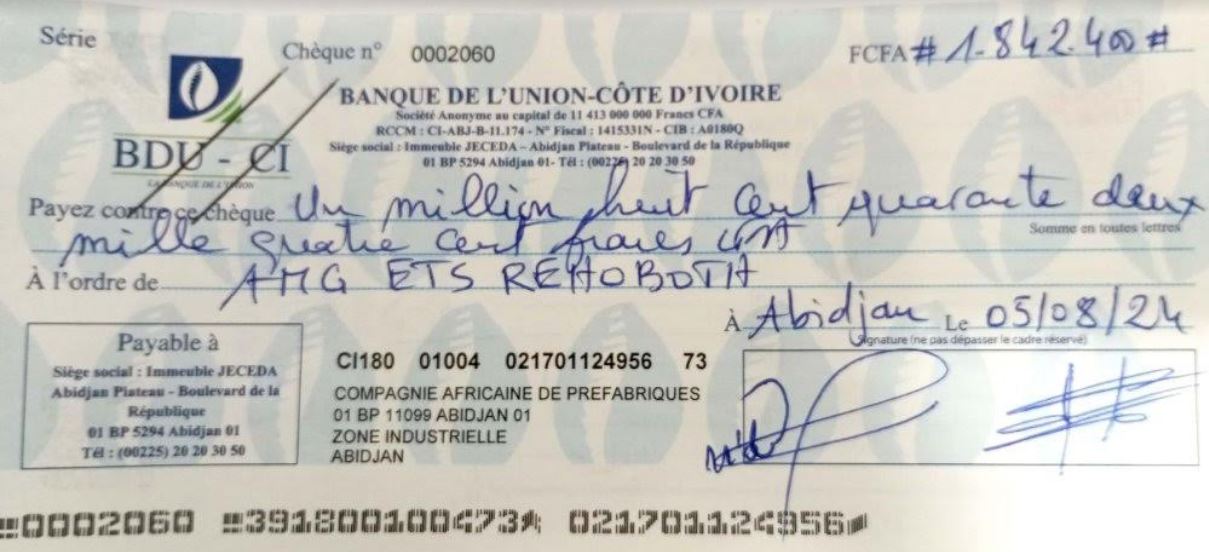 Série
Chèque n° 0002060
FCFA # 1.842.400 #
BANQUE DE L'UNION-CÔTE D'IVOIRE
Société Anonyme au capital de 11 413 000 000 Francs CFA
RCCM : CI-ABJ-B-11.174 - N° Fiscal : 1415331N - CIB : A0180Q
Siège social : Immeuble JECEDA – Abidjan Plateau - Boulevard de la République
01 BP 5294 Abidjan 01- Tél : (00225) 20 20 30 50
BDU - CI
LA BANQUE DE L'UNION
Payez contre ce chèque Un million huit cent quarante deux
Somme en toutes lettres
mille quatre cent francs CFA
À l'ordre de AMG ETS REHOBOTH
À Abidjan Le 05/08/24
Signature (ne pas dépasser le cadre réservé)
Payable à
Siège social : Immeuble JECEDA
Abidjan Plateau - Boulevard de la
République
01 BP 5294 Abidjan 01
Tél : (00225) 20 20 30 50
CI180 01004 021701124956 73
COMPAGNIE AFRICAINE DE PREFABRIQUES
01 BP 11099 ABIDJAN 01
ZONE INDUSTRIELLE
ABIDJAN
0002060 391800100473 021701124956